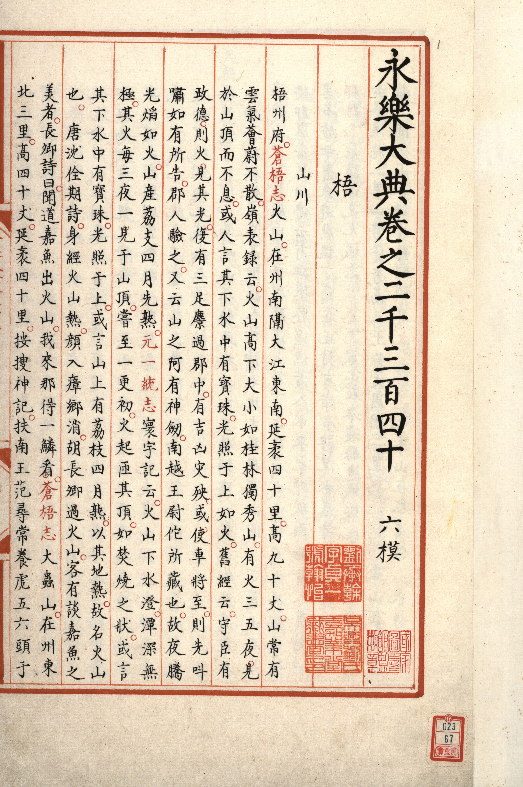 永樂大典卷之二千三百四十 六模
梧
山川
梧州府。蒼梧志火山。在州南隔大江東南。延袤四十里。高九十丈。山常有
雲氣薈蔚不散。嶺表錄云。火山高下大小如桂林獨秀山。有火三五夜見
於山頂而不息。或人言其下水中有寳珠。光照于上如火。舊經云。守臣有
政德則火見其光。復有三足麞過郡中。有吉凶灾殃或使車將至。則光叫
嘯如有所告。郡人驗之。又云山之阿有神劒。南越王尉佗所藏也。故夜騰
光熖如火。山産荔支四月先熟。元一統志寰宇記云。火山下水澄潭深無
極。其火每三夜一見于山頂。嘗至一更初。火起匝其頂。如焚燒之狀。或言
其下水中有寳珠。光照于上。或言山上有荔枝四月熟。以其地熱。故名火山
也。唐沈佺期詩。身經火山熱。顏入瘴鄉消。胡長卿過火山。客有談嘉魚之
美者。長卿詩曰聞道嘉魚出火山。我來那得一鱗看。蒼梧志大蟲山。在州東
北三里。高四十丈。延袤四十里。按搜神記。扶南王范尋常養虎五六頭于
1
623
67